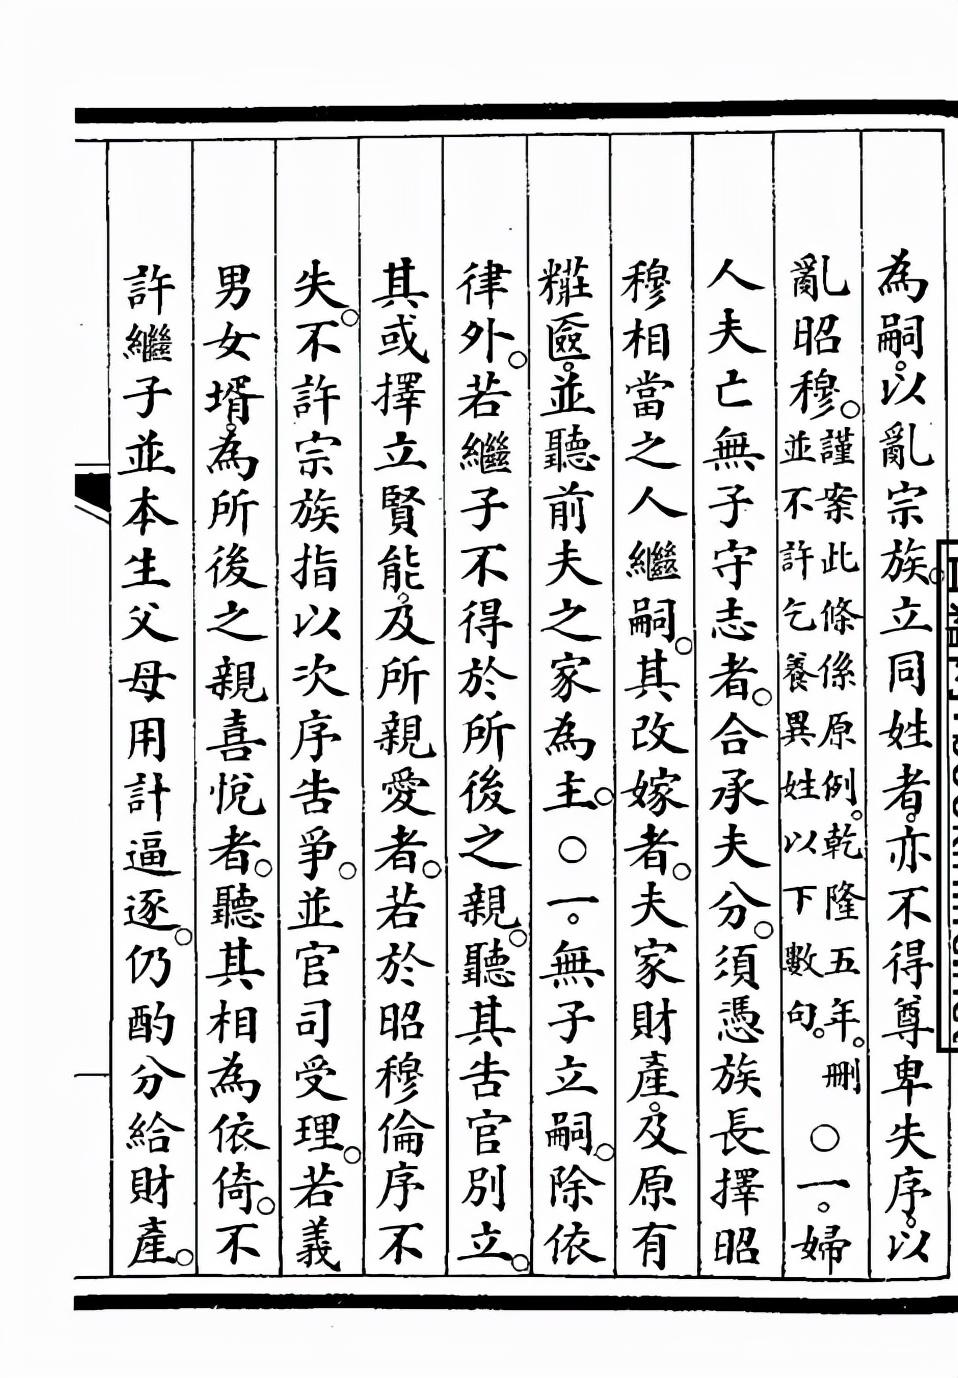 為嗣。以亂宗族。立同姓者。亦不得尊卑失序。以
亂昭穆。謹案此條係原例。乾隆五年。刪
並不許乞養異姓以下數句。○一。婦
人夫亡無子守志者。合承夫分。須憑族長擇昭
穆相當之人繼嗣。其改嫁者。夫家財產。及原有
糚匳。並聽前夫之家為主。○一。無子立嗣。除依
律外。若繼子不得於所後之親。聽其告官別立。
其或擇立賢能。及所親愛者。若於昭穆倫序不
失。不許宗族指以次序告爭。並官司受理。若義
男女壻。為所後之親喜悅者。聽其相為依倚。不
許繼子並本生父母用計逼逐。仍酌分給財產。